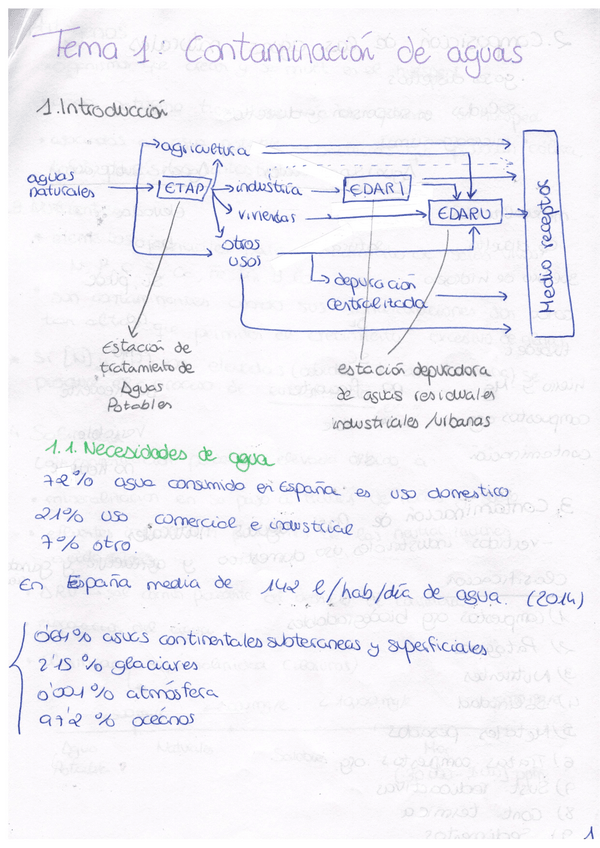 Tema 1: Contaminación de aguas
1. Introducción
agricultura
aguas naturales
ETAP
industria
EDARI
viviendas
EDARU
otros usos
depuración centralizada
Medio receptos
Estación de tratamiento de Aguas Potables
estación depuradora de aguas residuales industriales /urbanas
1.1. Necesidades de agua
72% agua consumido en España es uso domestico
21% uso comercial e industrial
7% otro.
En España media de 142 l/hab/día de agua. (2014)
0'64% aguas continentales subteraneas y superficiales
2'15 % glaciares
0'001 % atmósfera
97'2 % océanos
1